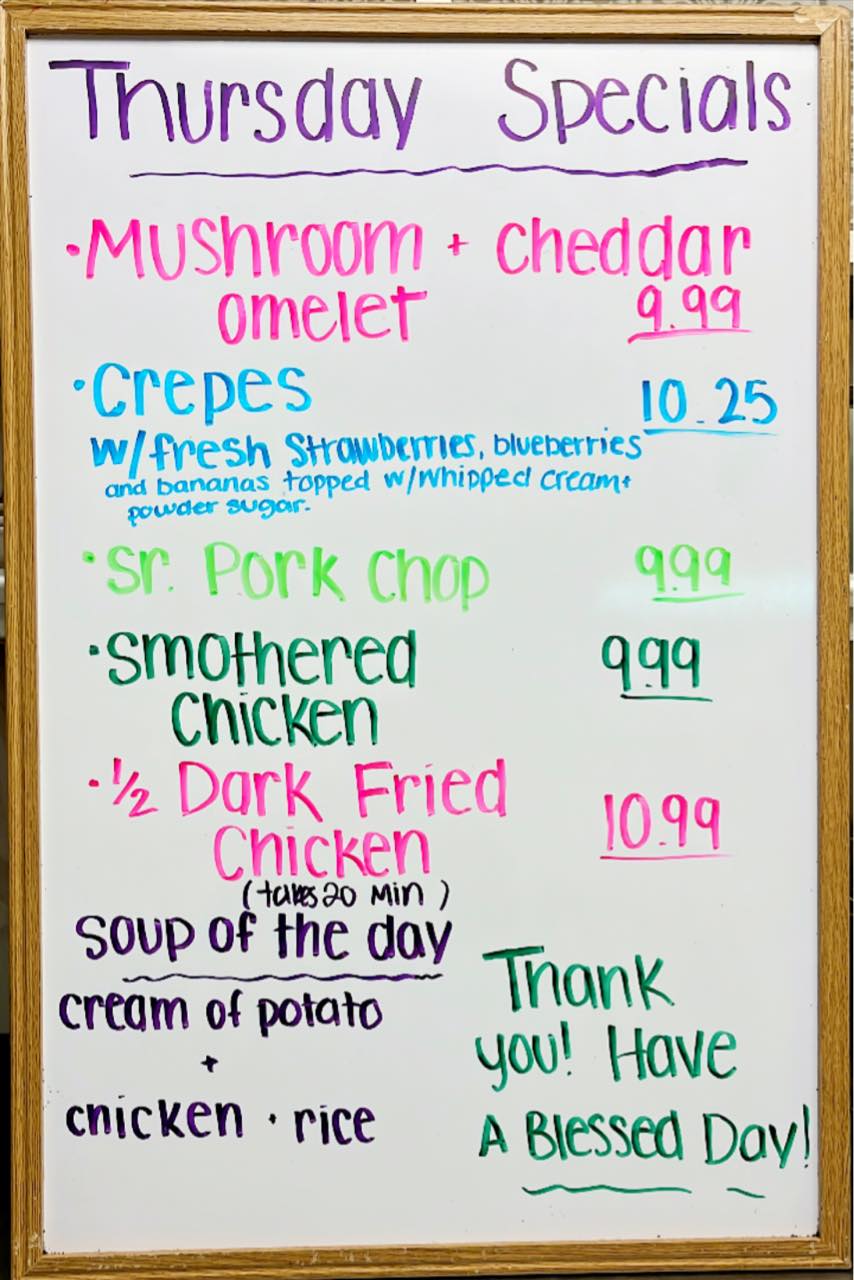 Thursday Specials
·Mushroom + cheddar
omelet 9.99
·Crepes 10.25
w/fresh Strawberries, blueberries
and bananas topped w/whipped cream+
powder sugar.
·Sr. Pork Chop 9.99
·Smothered 9.99
Chicken
·1/2 Dark Fried
Chicken 10.99
(takes 20 Min)
Soup of the day
cream of potato
+
chicken · rice
Thank
you! Have
A Blessed Day!